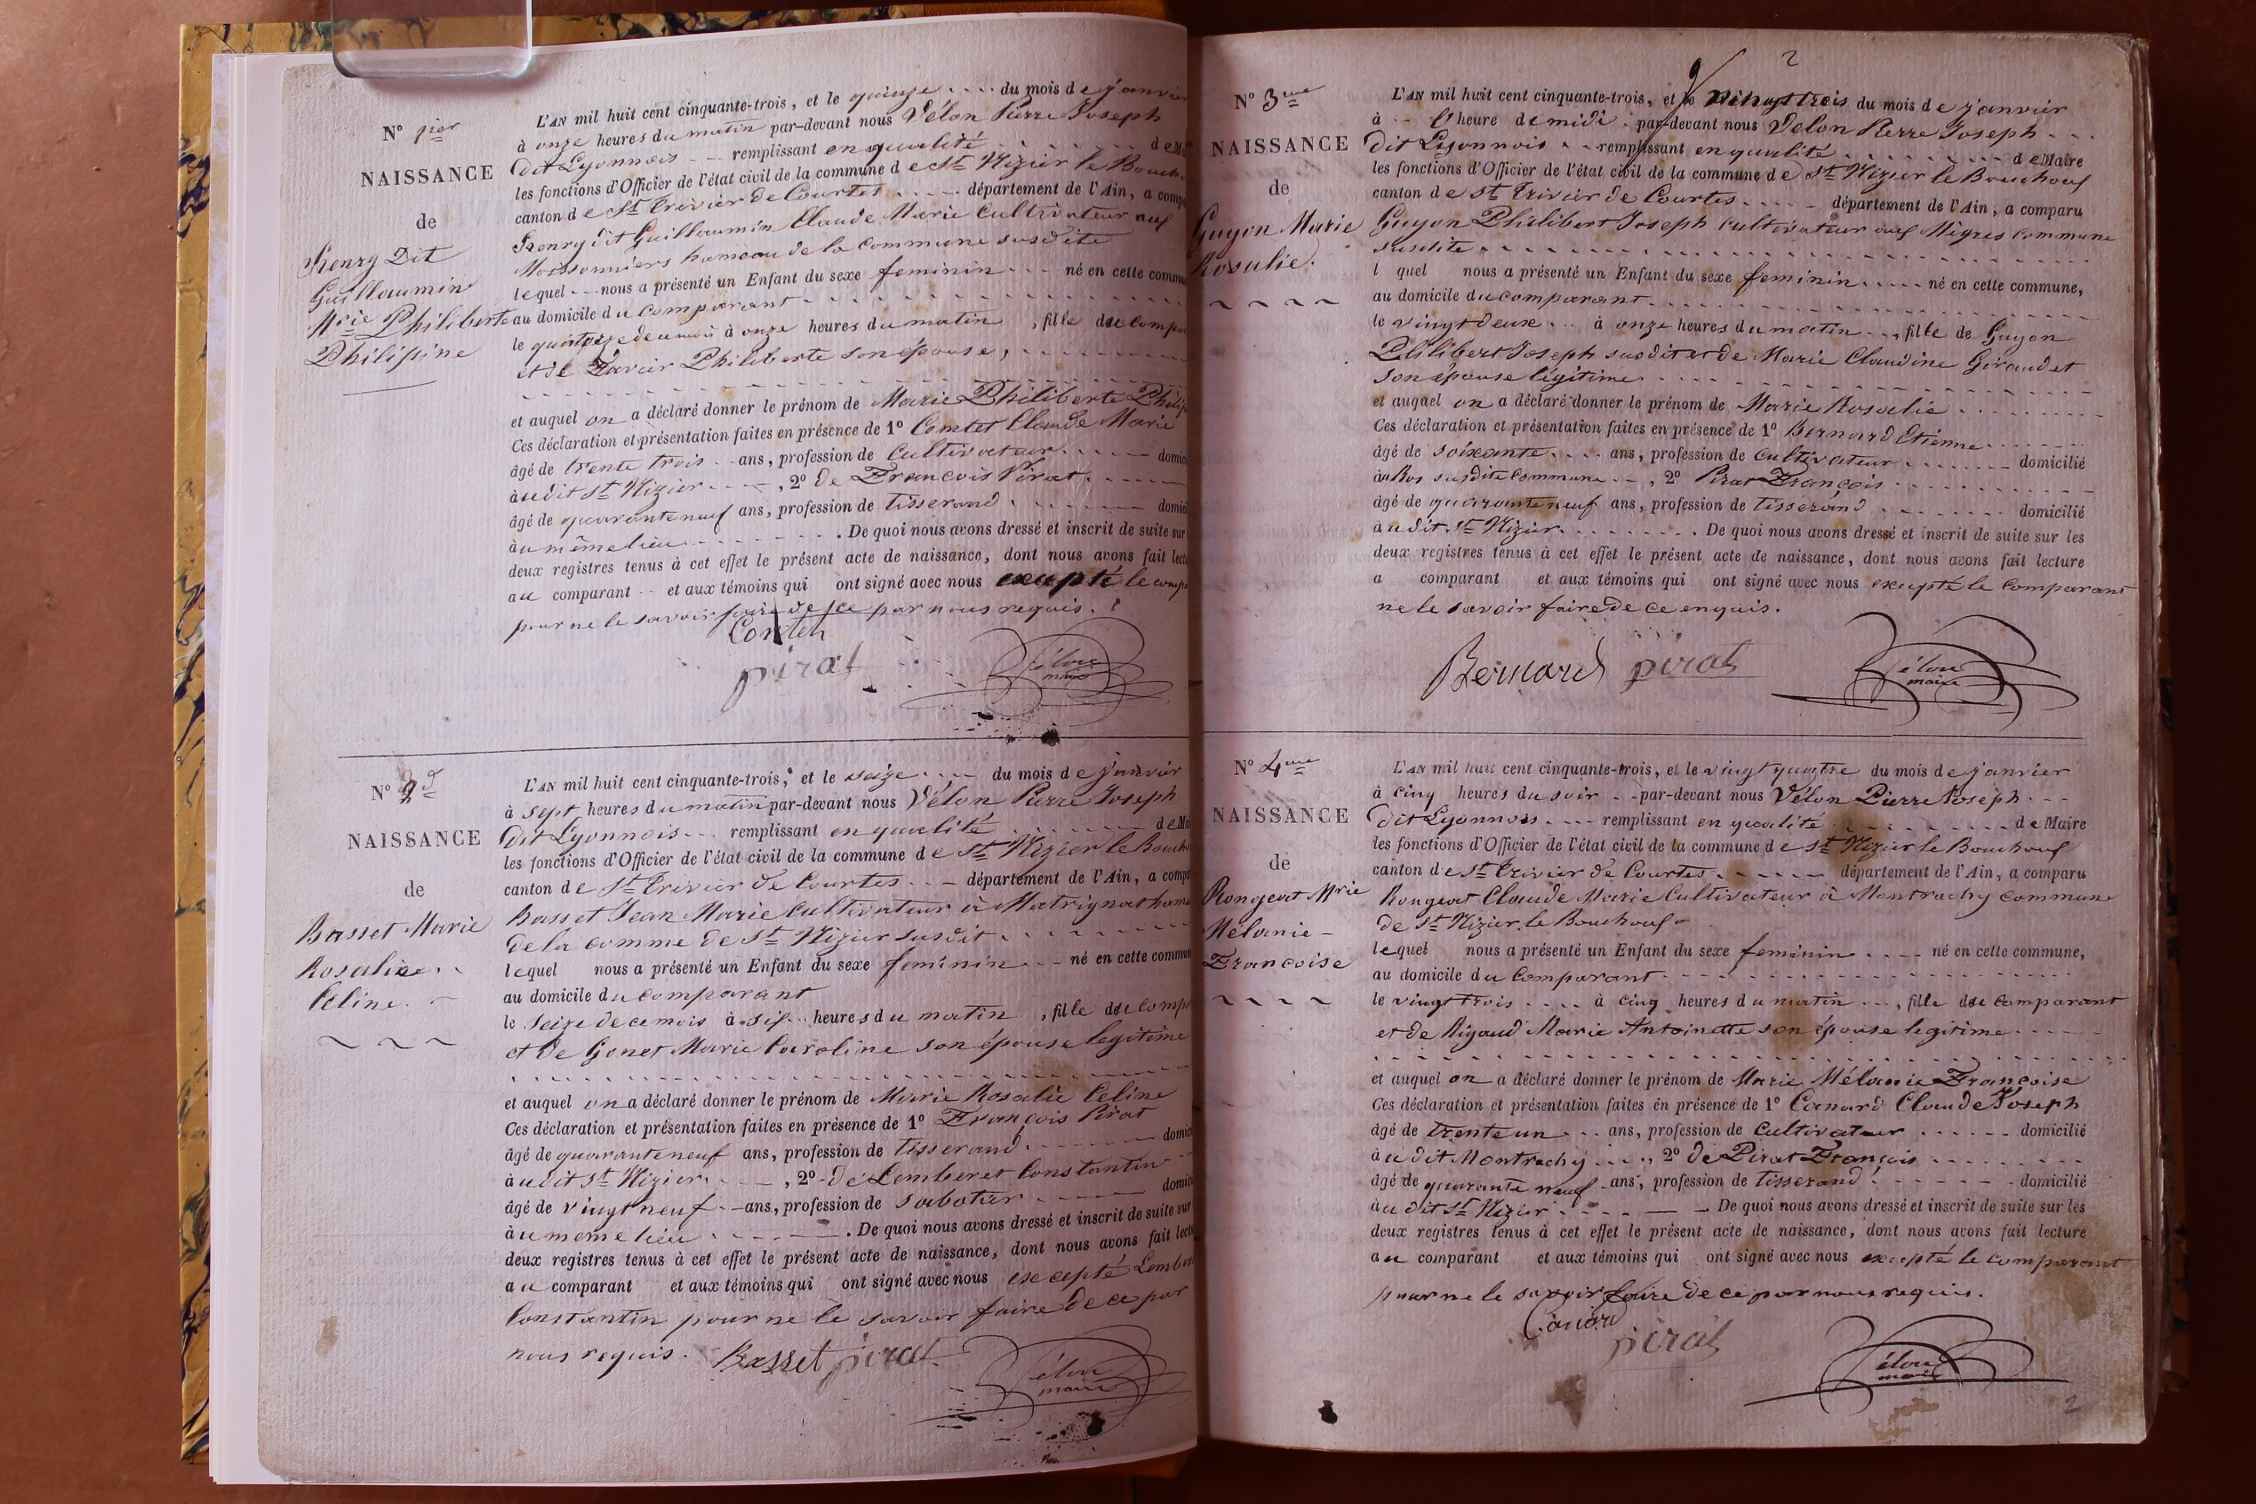 N° 1ier
NAISSANCE
de
Henry Dit
Guillaumin
Mrie Philiberte
Philipine
L'AN mil huit cent cinquante-trois, et le quinze du mois de janvier
à onze heures du matin par-devant nous Vélon Pierre Joseph
dit Lyonnois remplissant en qualité de M
les fonctions d'Officier de l'état civil de la commune de St Nizier le Bouch
canton de St Trivier de Courtes département de l'Ain, a comp
Henry dit Guillaumin Claude Marie Cultivateur aux
Moissonniers hameau de la Commune susdite
lequel nous a présenté un Enfant du sexe feminin né en cette commu
au domicile du comparant
le quinze de ce mois à onze heures du matin, fille du comp
et de Xavier Philiberte son épouse,
et auquel on a déclaré donner le prénom de Marie Philiberte Philip
Ces déclaration et présentation faites en présence de 1° Comtet Claude Marie
âgé de trente trois ans, profession de Cultivateur domic
à udit St Nizier, 2° de François Pirat
âgé de quarante neuf ans, profession de tisserand domic
àu même lieu. De quoi nous avons dressé et inscrit de suite sur
deux registres tenus à cet effet le présent acte de naissance, dont nous avons fait lect
au comparant et aux témoins qui ont signé avec nous excepté le comp
pour ne le savoir faire de ce par nous requis.
Comtet
pirat
Vélon
maire
N° 2d
NAISSANCE
de
Basset Marie
Rosalie
Celine
L'AN mil huit cent cinquante-trois, et le seize du mois de janvier
à sept heures du matin par-devant nous Vélon Pierre Joseph
dit Lyonnois remplissant en qualité de Ma
les fonctions d'Officier de l'état civil de la commune de St Nizier le Bouch
canton de St Trivier de Courtes département de l'Ain, a comp
Basset Jean Marie Cultivateur à Matrignat ham
de la comme de St Nizier susdit
lequel nous a présenté un Enfant du sexe feminin né en cette commun
au domicile du comparant
le Seize de ce mois à six heures du matin, fille du comp
et de Gonet Marie Caroline son épouse legitime
et auquel on a déclaré donner le prénom de Marie Rosalie Celine
Ces déclaration et présentation faites en présence de 1° François Pirat
âgé de quarante neuf ans, profession de tisserand domic
à udit St Nizier, 2° de Lemberet Constantin
âgé de vingt neuf ans, profession de sabotier domic
àu meme lieu. De quoi nous avons dressé et inscrit de suite sur
deux registres tenus à cet effet le présent acte de naissance, dont nous avons fait lect
au comparant et aux témoins qui ont signé avec nous excepté Lember
Constantin pour ne le savoir faire de ce par
nous requis. Basset pirat
Vélon
maire
2
N° 3me
NAISSANCE
de
Guyon Marie
Rosalie.
L'AN mil huit cent cinquante-trois, et le vingt trois du mois de janvier
à l' heure de midi par-devant nous Vélon Pierre Joseph
dit Lyonnois remplissant en qualité de Maire
les fonctions d'Officier de l'état civil de la commune de St Nizier le Bouchoux
canton de St Trivier de Courtes département de l'Ain, a comparu
Guyon Philibert Joseph cultivateur aux Migres commune
susdite
l quel nous a présenté un Enfant du sexe feminin né en cette commune,
au domicile du comparant
le vingt deux à onze heures du matin, fille de Guyon
Philibert Joseph susdit et de Marie Claudine Giraudet
son épouse légitime
et auquel on a déclaré donner le prénom de Marie Rosalie
Ces déclaration et présentation faites en présence de 1° Bernard Etienne
âgé de soixante ans, profession de Cultivateur domicilié
à susdite Commune, 2° Pirat François
âgé de quarante neuf ans, profession de tisserand domicilié
à u dit St Nizier. De quoi nous avons dressé et inscrit de suite sur les
deux registres tenus à cet effet le présent acte de naissance, dont nous avons fait lecture
a comparant et aux témoins qui ont signé avec nous excepté le Comparant
ne le savoir faire de ce enquis.
Bernard pirat
Vélon
maire
N° 4me
NAISSANCE
de
Rongeat Mrie
Mélanie
Françoise
L'AN mil huit cent cinquante-trois, et le vingt quatre du mois de janvier
à cinq heures du soir par-devant nous Vélon Pierre Joseph
dit Lyonnois remplissant en qualité de Maire
les fonctions d'Officier de l'état civil de la commune de St Nizier le Bouchoux
canton de St Trivier de Courtes département de l'Ain, a comparu
Rongeat Claude Marie Cultivateur à Montrachy commune
de St Nizier le Bouchoux
lequel nous a présenté un Enfant du sexe feminin né en cette commune,
au domicile du Comparant
le vingt trois à cinq heures du matin, fille du comparant
et de Rigaud Marie Antoinette son épouse legitime
et auquel on a déclaré donner le prénom de Marie Mélanie Françoise
Ces déclaration et présentation faites en présence de 1° Canard Claude Joseph
âgé de trente un ans, profession de Cultivateur domicilié
à u dit Montrachy, 2° de Pirat François
âgé de quarante neuf ans, profession de tisserand domicilié
à u dit St Nizier De quoi nous avons dressé et inscrit de suite sur les
deux registres tenus à cet effet le présent acte de naissance, dont nous avons fait lecture
au comparant et aux témoins qui ont signé avec nous excepté le comparant
pour ne le savoir faire de ce par nous requis.
Canard
pirat
Vélon
maire
2